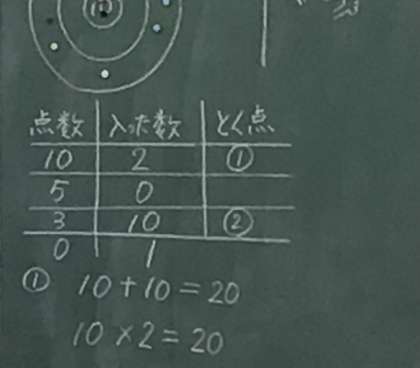 10
点数 入求数 とく点
10 2 ①
5 0
3 10 ②
0 1
① 10+10=20
10×2=20